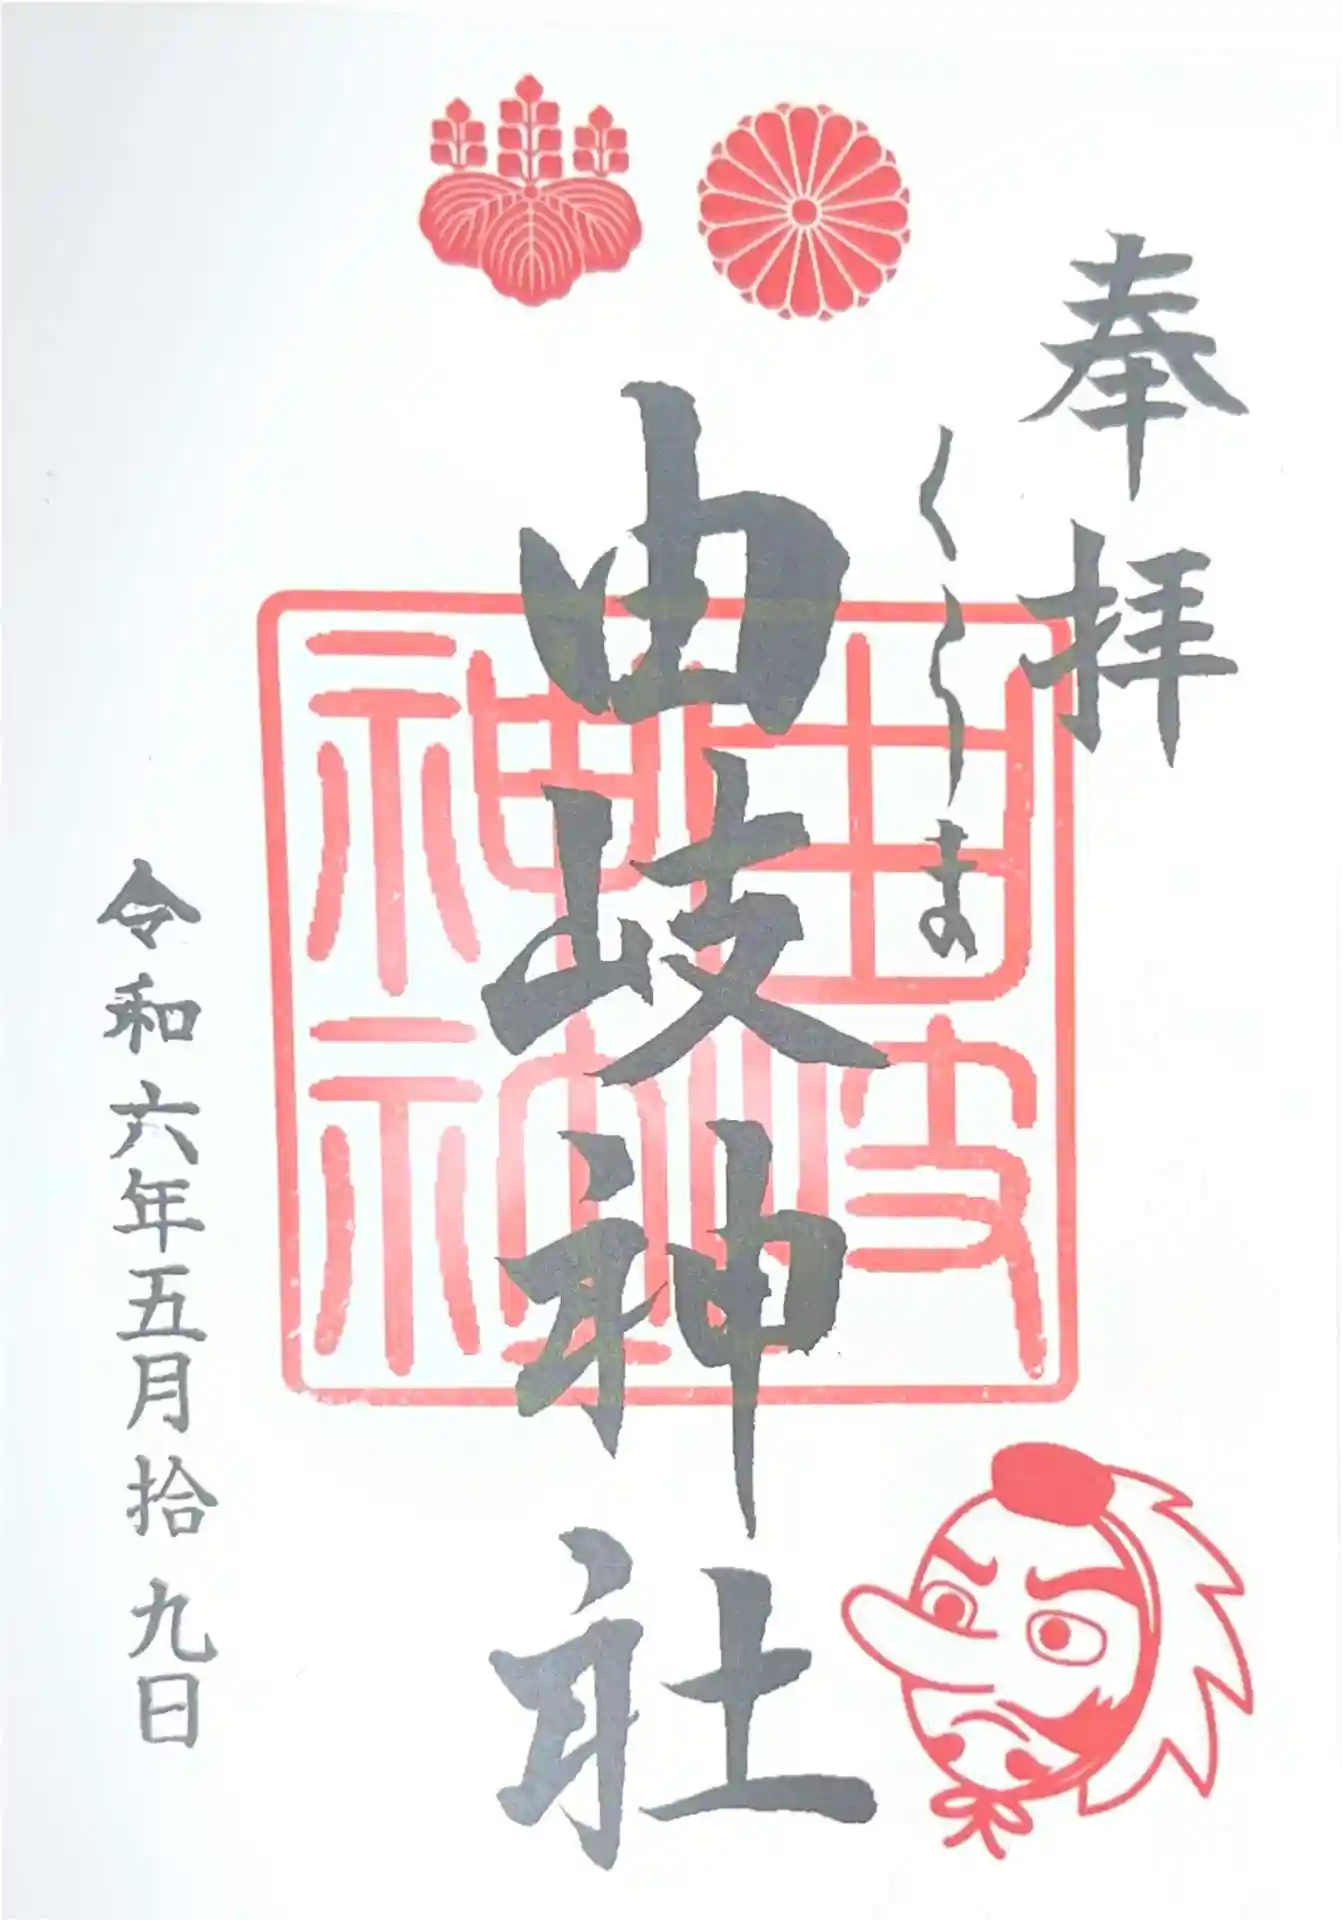 奉拝
くらま
由岐神社
由岐神社
令和六年五月拾九日